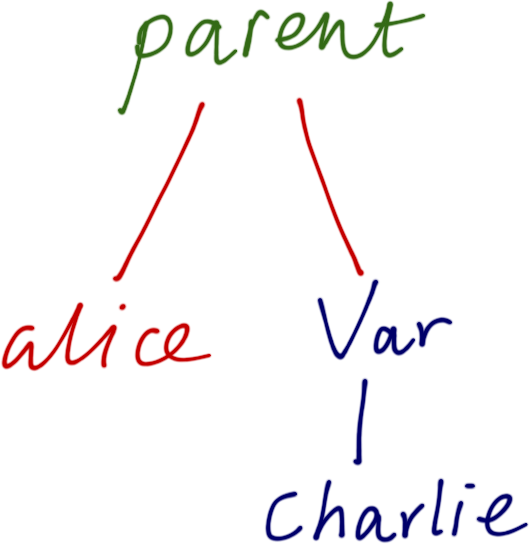 parent
alice Var
Charlie